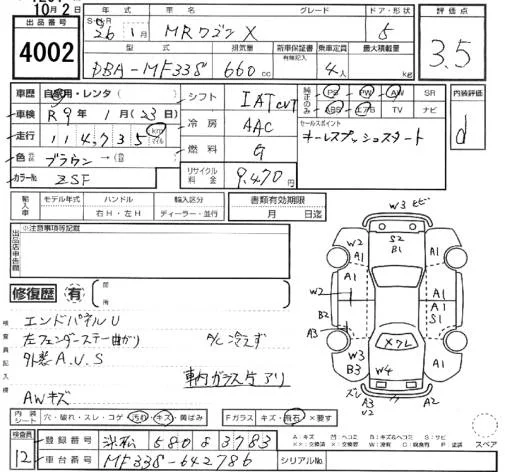 10月2日
出品番号
4002
年式 グレード ドア・形状
26年 1月 MRワゴン X 5
型式 排気量 新車保証書 乗車定員 最大積載量
有無記入
DBA-MF33S 660cc 4人 kg
評価点
3.5
車歴 自家用・レンタ( )
車検 R9年 1月(23日)
走行 114,735 km マイル
色 ブラウン →( )
カラーNo. ZSF
シフト IAT CVT
冷房 AAC
燃料 G
リサイクル料金 9,470円
純正のみ PS PW AW SR
ABS エアB TV ナビ
セールスポイント
キーレスプッシュスタート
内装評価
d
輸入車 モデル年式 ハンドル 輸入区分
年 右H・左H ディーラー・並行
書類有効期限
月 日迄
出品店申告欄
※注意事項等記載
修復歴 有
検査員記入欄
エンドパネルU
左フェンダーステー曲がり A/C冷えず
外装A.U.S
車内ガラス片アリ
AWキズ
W3 モビ
S2
B1
W2
A1
A1
W2
A1
A1
B2
S1
A3
Xワレ
W3
B3
A1
W4
ズレ
A3
U2
A2
内装シート 穴・破れ・スレ・コゲ 汚れ・キズ・黄ばみ
Fガラス キズ・飛石・×要す
検査員
12
登録番号 浜松 580 き 3783
車台番号 MF33S-642786
シリアルNo.
スペア